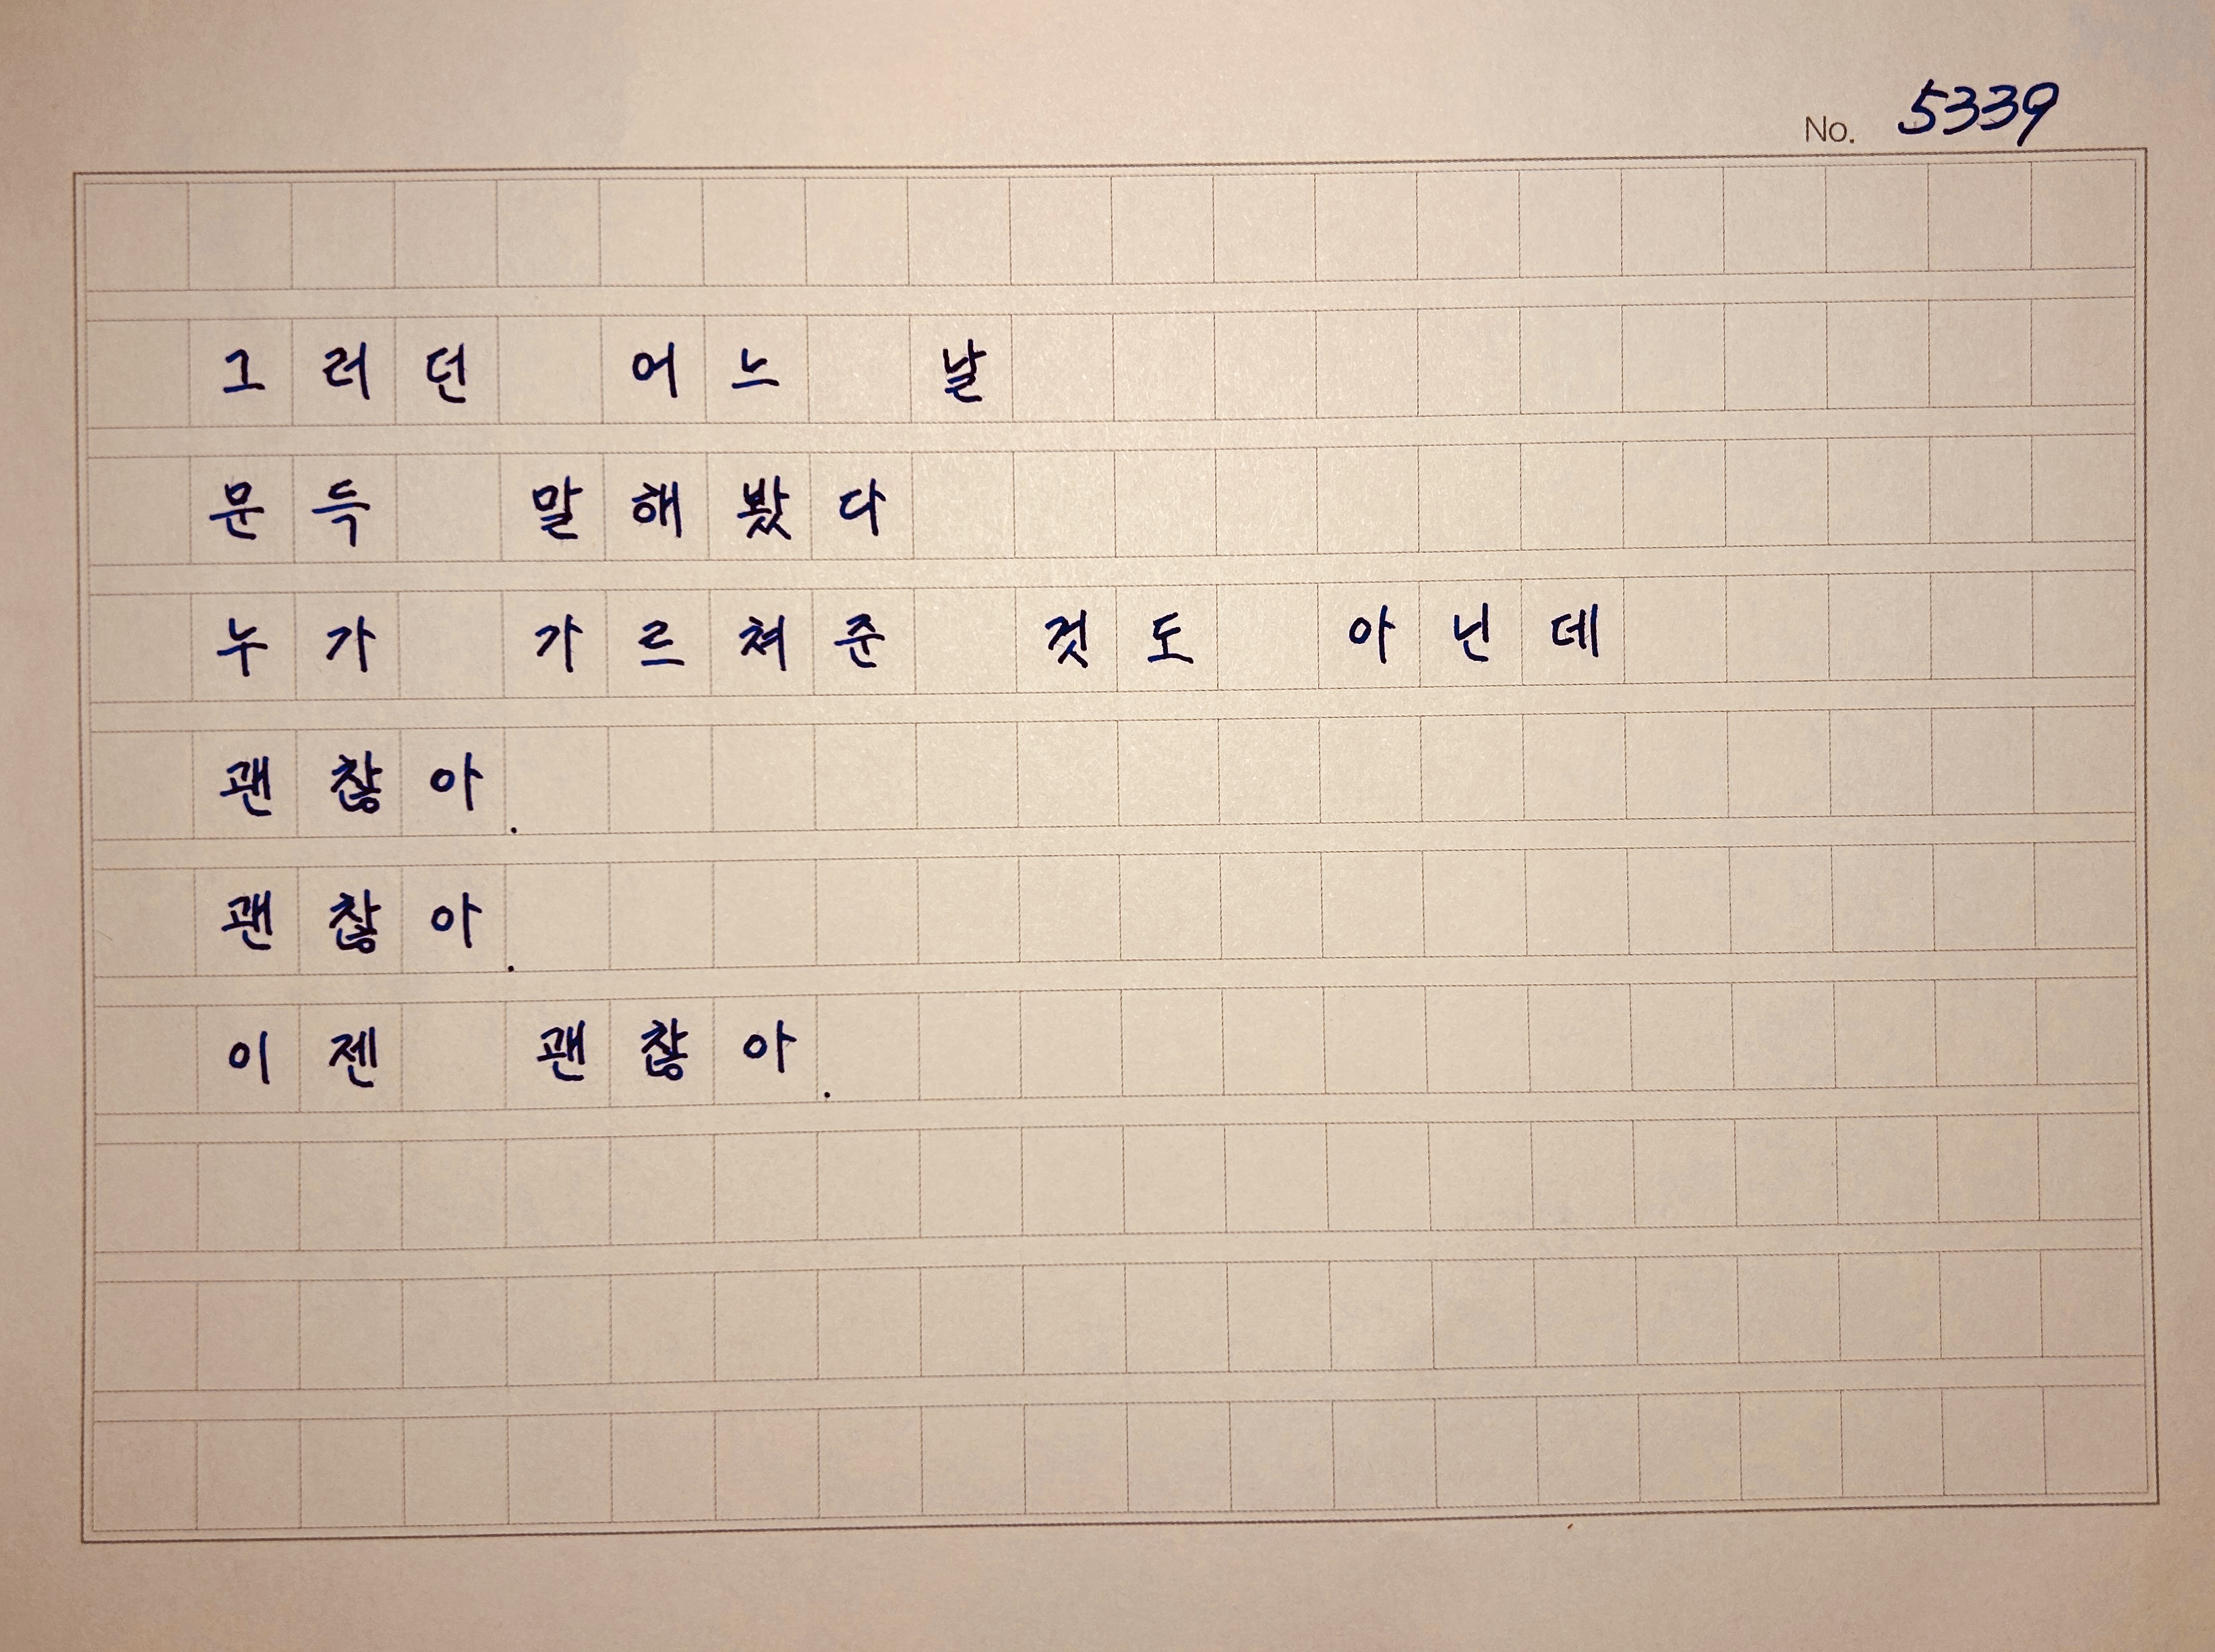 No. 5339
그러던 어느 날
문득 말해봤다
누가 가르쳐준 것도 아닌데
괜찮아.
괜찮아.
이젠 괜찮아.